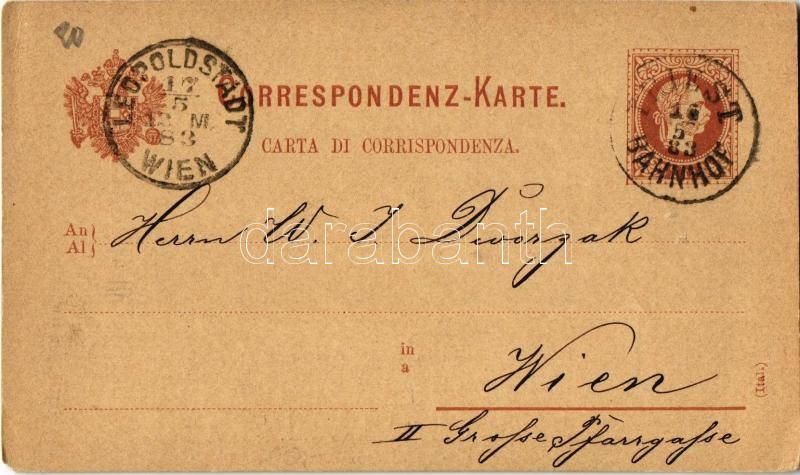 CORRESPONDENZ-KARTE.
CARTA DI CORRISPONDENZA.
LEOPOLDSTADT
17
5
12. M.
83
WIEN
TRIEST
16
5
83
BAHNHOF
An
Al
Herrn W. J. Dworzak
darabanth
in
a
Wien
II Grosse Pfarrgasse
(Ital.)